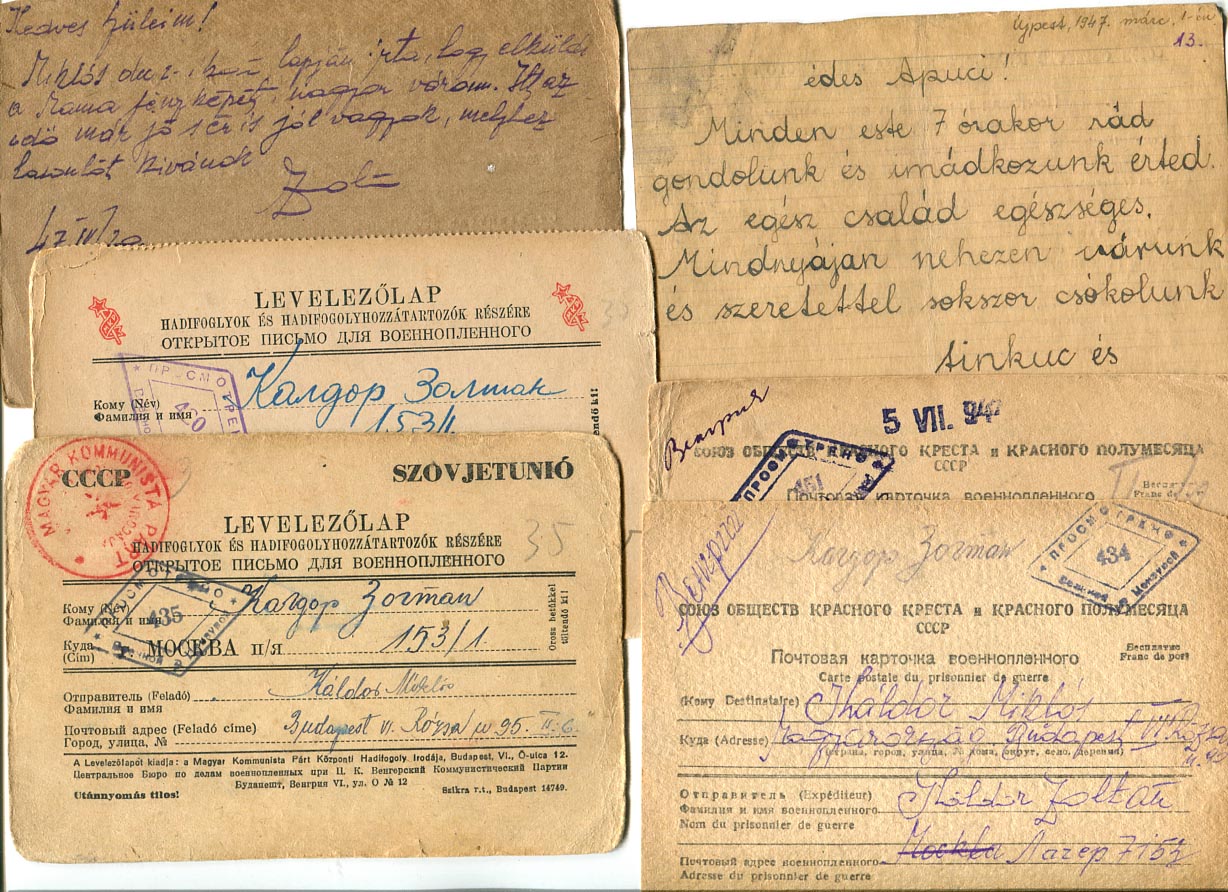 Kedves Szüleim!
Miklós lapján írta, hogy elküldi
a Mama fényképét, nagyon várom. Itt az
idő már jó s én is jól vagyok, melyhez
hasonlót kivánok
Zoli
Újpest, 1947. márc. 1-én
13.
édes Apuci!
Minden este 7 órakor rád
gondolunk és imádkozunk érted.
Az egész család egészséges.
Mindnyájan nehezen várunk
és szeretettel sokszor csókolunk
és
LEVELEZŐLAP
HADIFOGLYOK ÉS HADIFOGOLYHOZZÁTARTOZÓK RÉSZÉRE
ОТКРЫТОЕ ПИСЬМО ДЛЯ ВОЕННОПЛЕННОГО
35
Кому (Név)
Фамилия и имя
Калдор Золтан
153/1
ПРОСМОТРЕНО
420
MAGYAR KOMMUNISTA PÁRT
СССР
SZOVJETUNIÓ
LEVELEZŐLAP
HADIFOGLYOK ÉS HADIFOGOLYHOZZÁTARTOZÓK RÉSZÉRE
ОТКРЫТОЕ ПИСЬМО ДЛЯ ВОЕННОПЛЕННОГО
35
Кому (Név)
Фамилия и имя
Калдор Золтан
Куда (Cím) МОСКВА п/я 153/1
Orosz betükkel töltendő ki!
435
Отправитель (Feladó) Káldor Miklós
Фамилия и имя
Почтовый адрес (Feladó címe) Budapest VI. Rózsa u 95. II. 6.
Город, улица, №
A Levelezőlapot kiadja: a Magyar Kommunista Párt Központi Hadifogoly Irodája, Budapest, VI., Ó-utca 12.
Центральное Бюро по делам военнопленных при Ц. К. Венгерский Коммунистический Партии
Будапешт, Венгрия VI., ул О № 12
Utánnyomás tilos!
Szikra r.t., Budapest 14749.
Венгрия
5 VII. 947
СОЮЗ ОБЩЕСТВ КРАСНОГО КРЕСТА и КРАСНОГО ПОЛУМЕСЯЦА
СССР
ПРОСМОТРЕНО
451
Почтовая карточка военнопленного
Бесплатно
Franc de port
Венгрия
Калдор Золтан
ПРОСМОТРЕНО
434
СОЮЗ ОБЩЕСТВ КРАСНОГО КРЕСТА и КРАСНОГО ПОЛУМЕСЯЦА
СССР
Почтовая карточка военнопленного
Carte postale du prisonnier de guerre
Бесплатно
Franc de port
(Кому Destinataire) Káldor Miklós
Куда (Adresse) Magyarország Budapest
(страна, город, улица, № дома, округ, село, деревня)
Отправитель (Expéditeur)
Фамилия и имя военнопленного Káldor Zoltán
Nom du prisonnier de guerre
Почтовый адрес военнопленного Лагерь 7157
Adresse du prisonnier de guerre